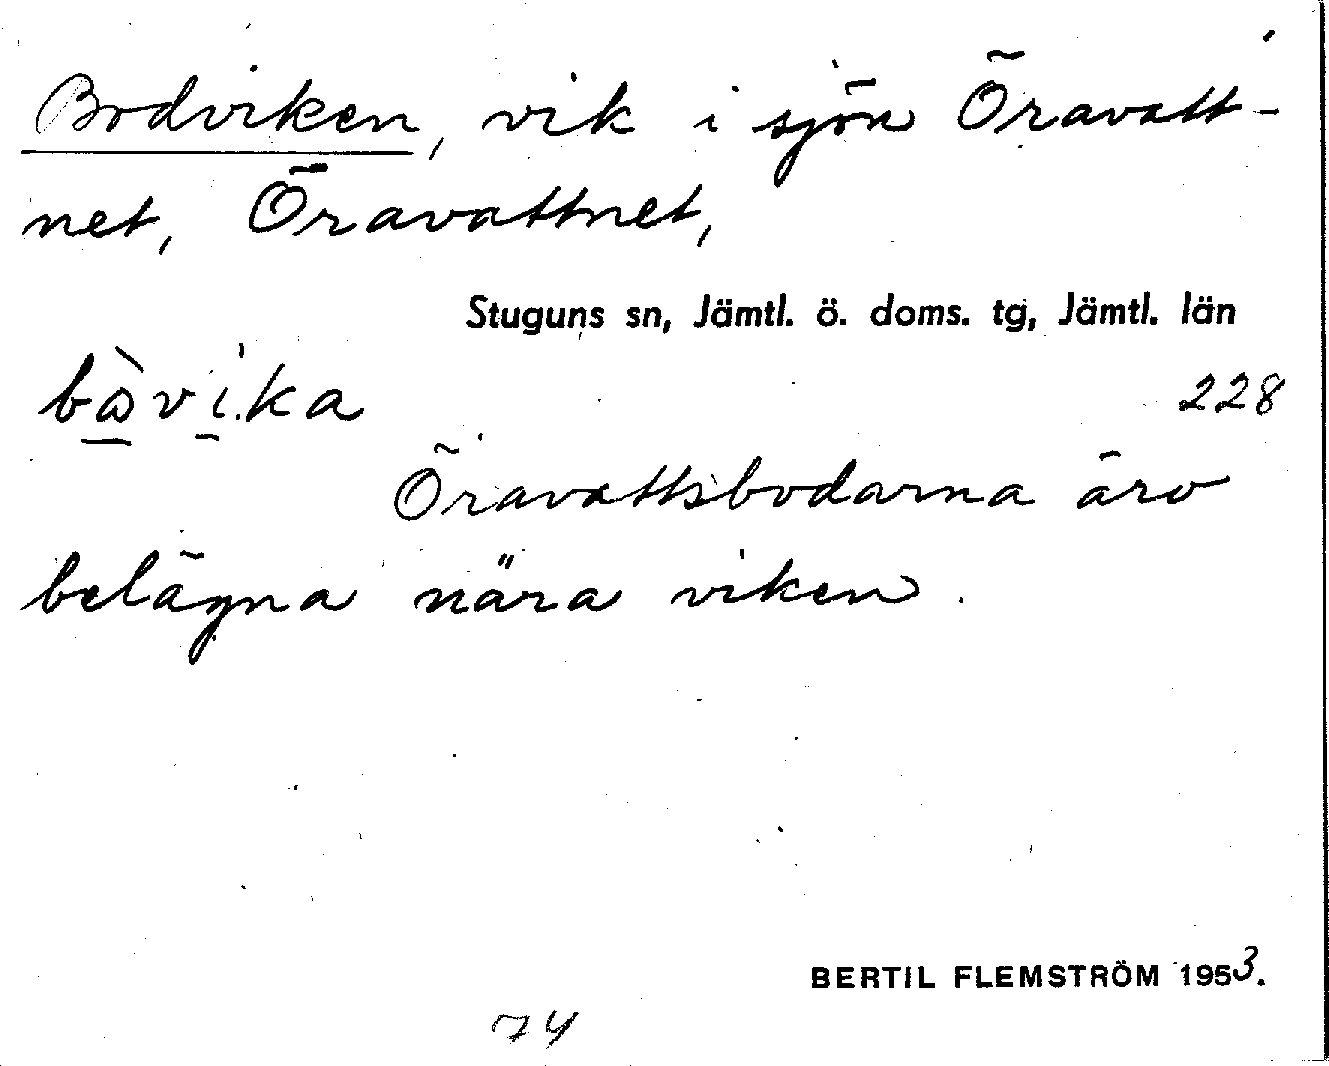 Bodviken, vik i sjön Öravatt-
net, Öravattnet,
Stuguns sn, Jämtl. ö. doms. tg, Jämtl. län
228
Öravattsbodarna äro
belägna nära viken.
BERTIL FLEMSTRÖM 1953.
74